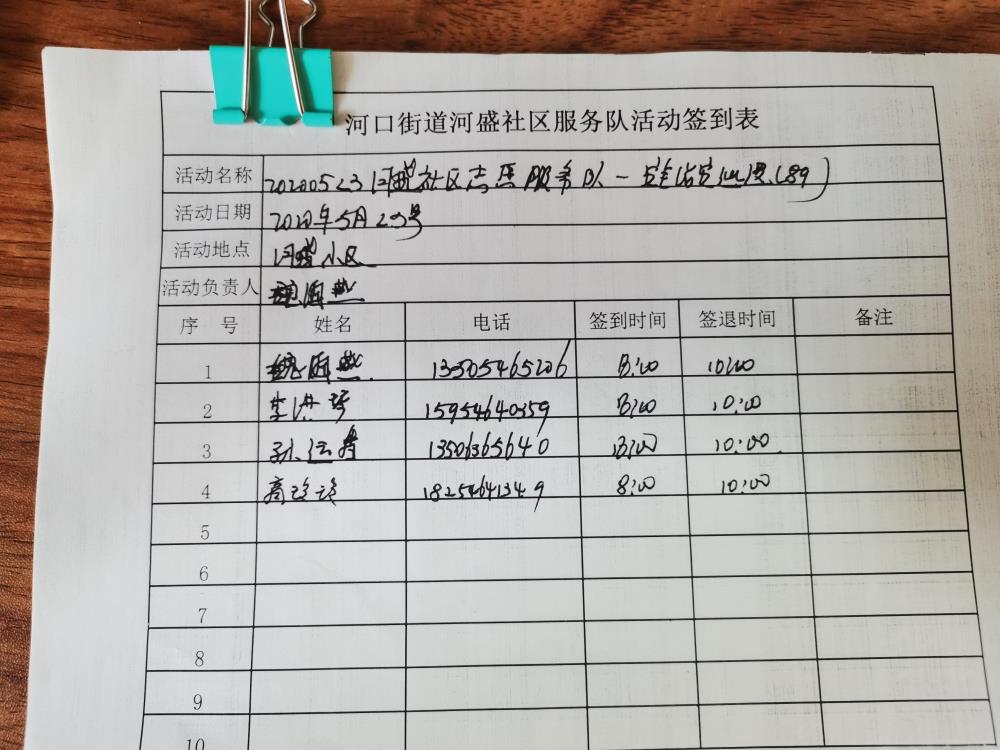 河口街道河盛社区服务队活动签到表
活动名称 20200523河盛社区志愿服务队一
活动日期 2020年5月23号
活动地点 河盛小区
活动负责人
序号 姓名 电话 签到时间 签退时间 备注
1 13505465206 8:00 10:00
2 李洪琴 15954640359 8:00 10:00
3 13506365640 8:00 10:00
4 高珍珍 18254641349 8:00 10:00
5
6
7
8
9
10